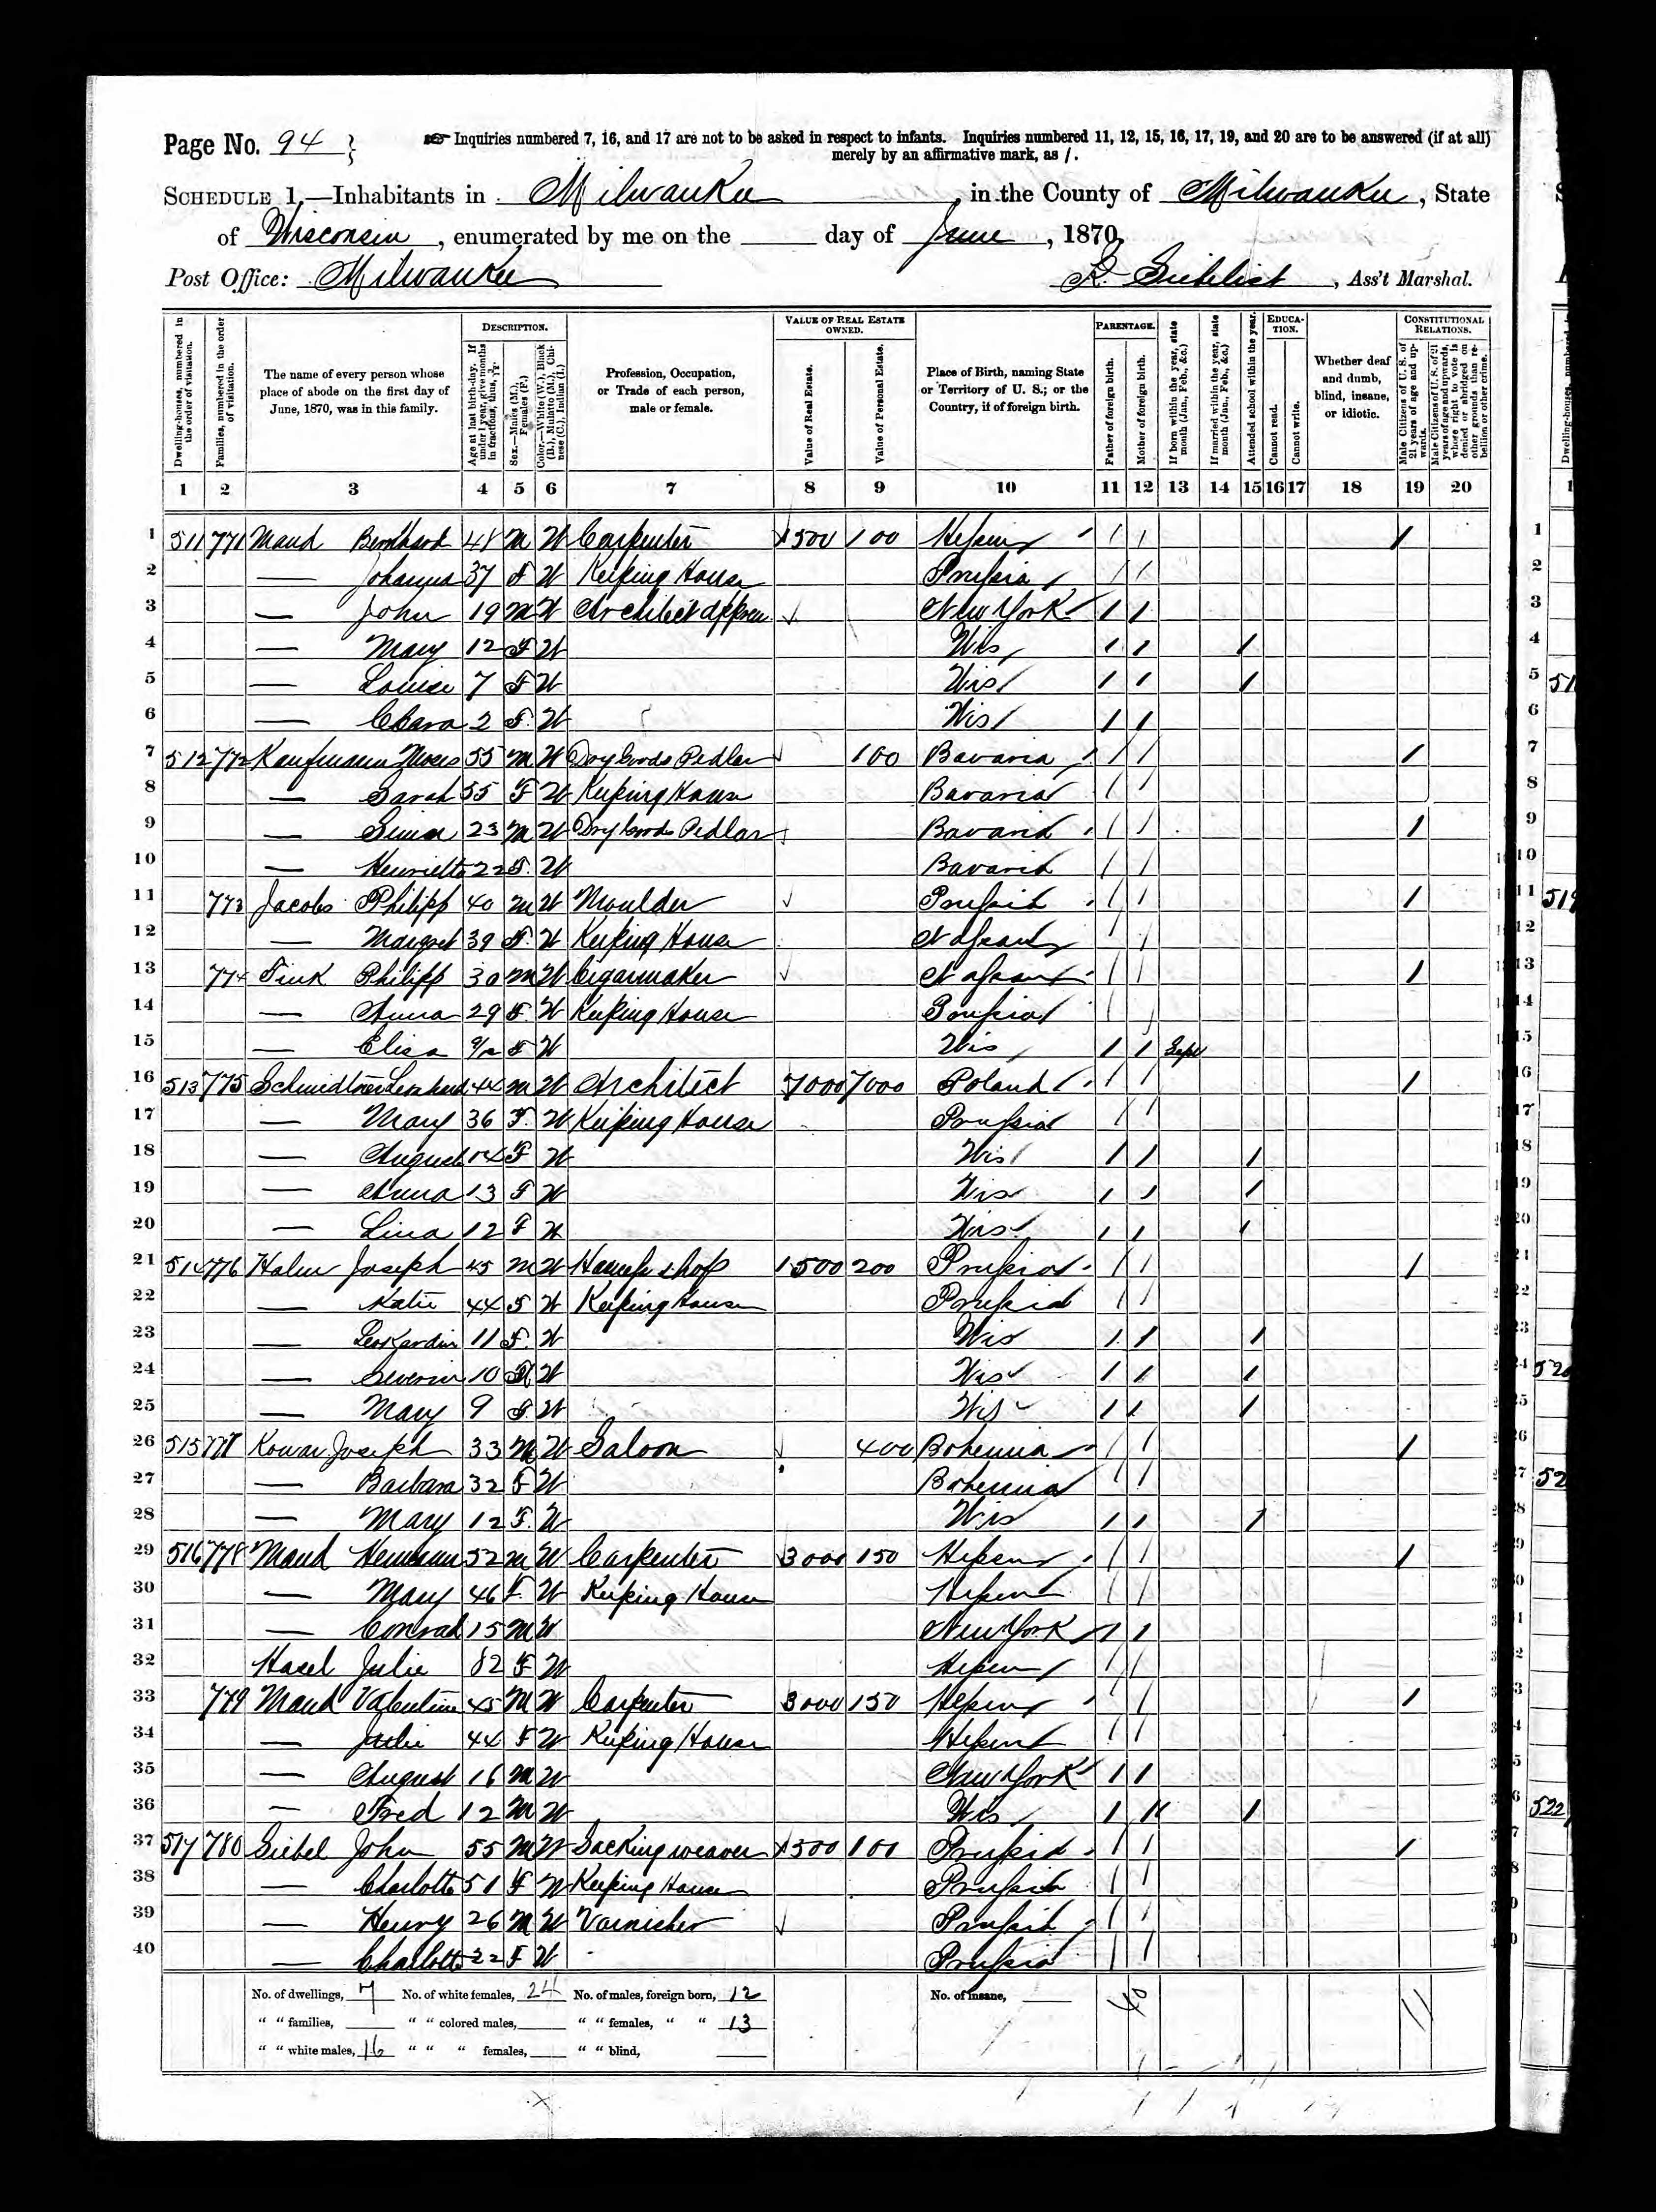 Page No. 94
Inquiries numbered 7, 16, and 17 are not to be asked in respect to infants. Inquiries numbered 11, 12, 15, 16, 17, 19, and 20 are to be answered (if at all)
merely by an affirmative mark, as /.
SCHEDULE 1.—Inhabitants in Milwaukee, in the County of Milwaukee, State
of Wisconsin, enumerated by me on the day of June, 1870.
Post Office: Milwaukee , Ass't Marshal.
Dwelling-houses, numbered in the order of visitation.
Families, numbered in the order of visitation.
The name of every person whose place of abode on the first day of June, 1870, was in this family.
DESCRIPTION.
Age at last birth-day. If under 1 year, give months in fractions, thus, 3/12.
Sex.—Males (M.), Females (F.)
Color.—White (W.), Black (B.), Mulatto (M.), Chinese (C.), Indian (I.)
Profession, Occupation, or Trade of each person, male or female.
VALUE OF REAL ESTATE OWNED.
Value of Real Estate.
Value of Personal Estate.
Place of Birth, naming State or Territory of U. S.; or the Country, if of foreign birth.
PARENTAGE.
Father of foreign birth.
Mother of foreign birth.
If born within the year, state month (Jan., Feb., &c.)
If married within the year, state month (Jan., Feb., &c.)
Attended school within the year.
EDUCATION.
Cannot read.
Cannot write.
Whether deaf and dumb, blind, insane, or idiotic.
CONSTITUTIONAL RELATIONS.
Male Citizens of U. S. of 21 years of age and upwards.
Male Citizens of U. S. of 21 years of age and upwards, whose right to vote is denied or abridged on other grounds than rebellion or other crime.
1 2 3 4 5 6 7 8 9 10 11 12 13 14 15 16 17 18 19 20
1 511 771 Maud 48 M W Carpenter 1500 100 / / /
2 — Johanna 37 F W Keeping House Prussia / /
3 — John 19 M W Architect New York / /
4 — Mary 12 F W Wis / / /
5 — Louise 7 F W Wis / / /
6 — Clara 2 F W Wis / /
7 512 772 Kaufmann Moses 55 M W Dry Goods Pedlar 100 Bavaria / / /
8 — Sarah 55 F W Keeping House Bavaria / /
9 — 23 M W Dry Goods Pedlar Bavaria / / /
10 — Henrietta 22 F W Bavaria / /
11 773 Jacobs Philipp 40 M W Moulder Prussia / / /
12 — Margret 39 F W Keeping House Nassau / /
13 774 Fink Philipp 30 M W Cigarmaker Nassau / / /
14 — Anna 29 F W Keeping House Prussia / /
15 — Elisa 9/12 F W Wis / / Sept
16 513 775 44 M W Architect 7000 7000 Poland / / /
17 — Mary 36 F W Keeping House Prussia / /
18 — August 14 F W Wis / / /
19 — Anna 13 F W Wis / / /
20 — Lina 12 F W Wis / / /
21 514 776 Joseph 45 M W Harness shop 1500 200 Prussia / / /
22 — Katie 44 F W Keeping House Prussia / /
23 — 11 F W Wis / / /
24 — Severin 10 M W Wis / / /
25 — Mary 9 F W Wis / / /
26 515 777 Kowar Joseph 33 M W Saloon 400 Bohemia / / /
27 — Barbara 32 F W Bohemia / /
28 — Mary 12 F W Wis / / /
29 516 778 Maud Hermann 52 M W Carpenter 3000 150 Hessen / / /
30 — Mary 46 F W Keeping House Hessen / /
31 — Conrad 15 M W New York / /
32 Hasel Julie 82 F W Hessen / /
33 779 Maud Valentine 45 M W Carpenter 3000 150 Hessen / / /
34 — Julie 44 F W Keeping House Hessen / /
35 — August 16 M W New York / /
36 — Fred 12 M W Wis / / /
37 517 780 Siebel John 55 M W Sacking weaver 1500 100 Prussia / / /
38 — Charlotte 51 F W Keeping House Prussia / /
39 — Henry 26 M W Varnisher Prussia / /
40 — Charlotte 22 F W Prussia / /
No. of dwellings, 7 No. of white females, 24 No. of males, foreign born, 12 No. of insane,
" " families, " " colored males, " " females, " " 13
" " white males, 16 " " " females, " " blind,